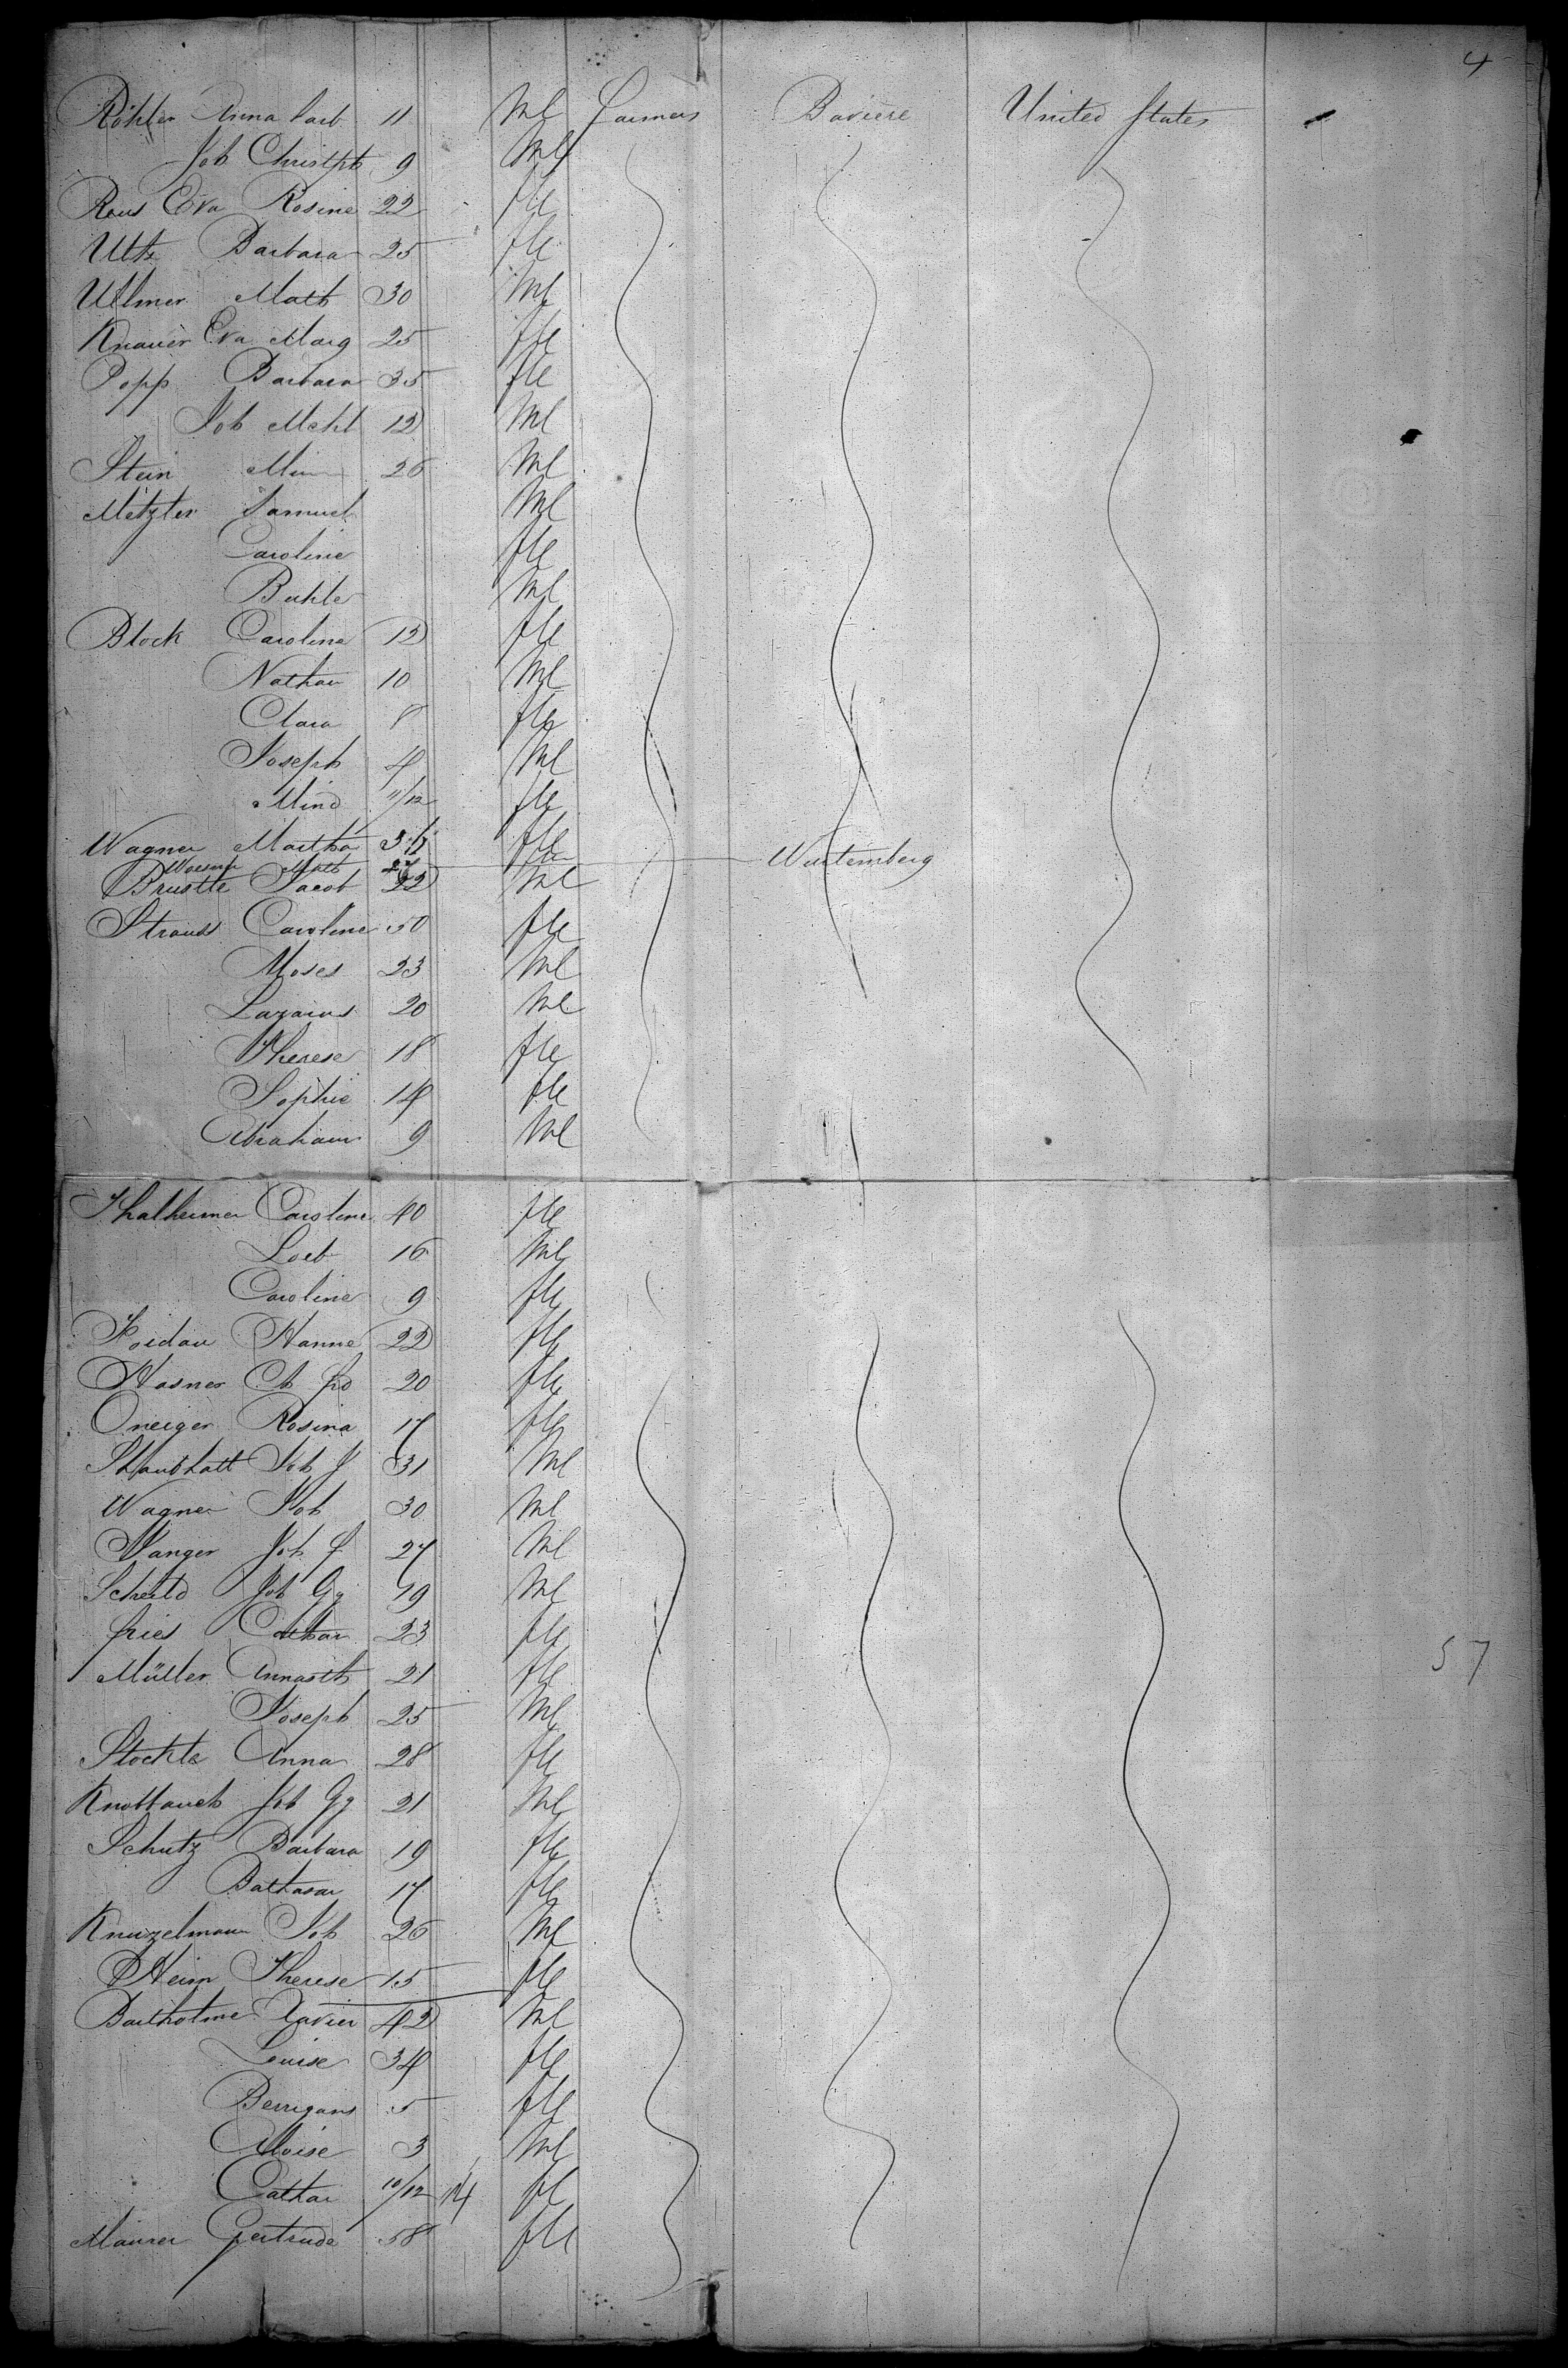 4
Röhler Anna Barb 11 Ml Farmers Baviere United States
Joh Christph 9 Ml
Raus Eva Rosine 22 fle
Utz Barbara 25 fle
Ullmer Math 30 Ml
Knauer Eva Marg 25 fle
Popp Barbara 35 fle
Joh Mchl 12 Ml
Stein 26 Ml
Metzler Samuel Ml
Caroline fle
Ml
Block Caroline 12 fle
Nathan 10 Ml
Clara 8 fle
Joseph 4 Ml
Mind 11/12 fle
Wagner Martha fle
Math 27 Wurtemberg
Brustle Jacob 22 Ml
Strauss Caroline 50 fle
Moses 23 Ml
Lazarus 20 Ml
Therese 18 fle
Sophie 14 fle
Abraham 9 Ml
Thalheimer Caroline 40 fle
Loeb 16 Ml
Caroline 9 fle
Hanne 22 fle
Hasner 20 fle
Rosina 17 fle
Joh J 31 Ml
Wagner Joh 30 Ml
Wanger Joh f 27 Ml
Joh Gg 19 Ml
fries Cathar 23 fle
57
Müller 21 fle
Joseph 25 Ml
Stochle Anna 28 fle
Knoblauch Joh Gg 21 Ml
Schutz Barbara 19 fle
Balthasar 17 fle
Knuzelmann Joh 26 Ml
Heim Therese 15 fle
Bartholme Xavier 42 Ml
Louise 34 fle
5 fle
Aloise 3 Ml
Cathar 10/12 14 fl
Maurer Gertrude 58 fle